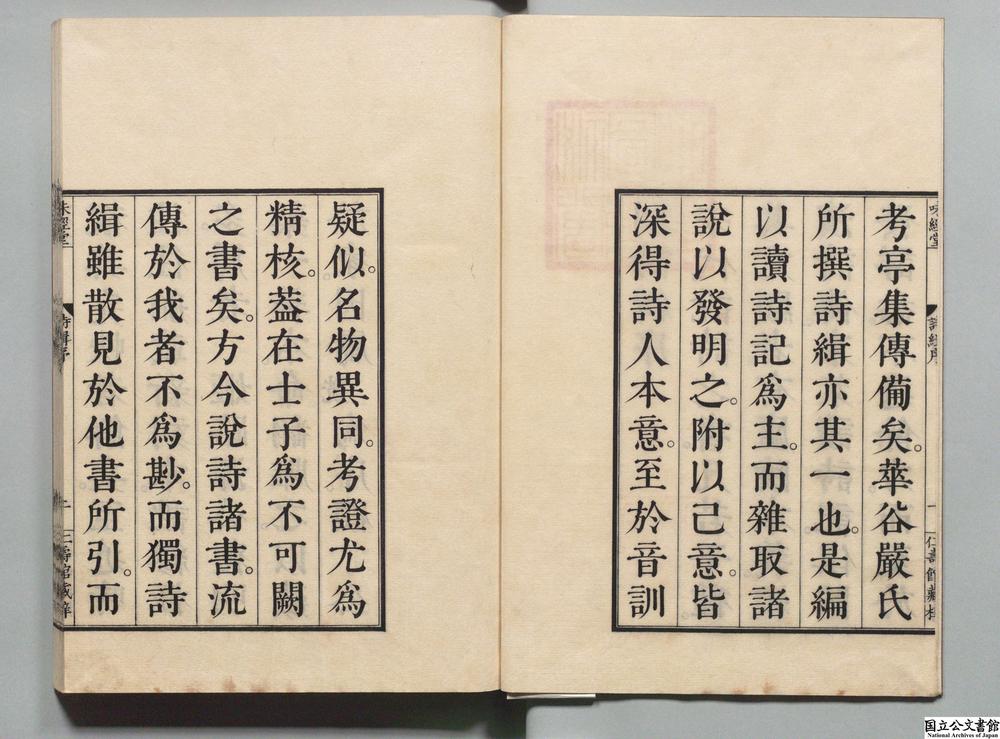 考亭集傳備矣。華谷嚴氏
所撰詩緝亦其一也。是編
以讀詩記爲主。而雜取諸
說以發明之。附以己意。皆
深得詩人本意。至於音訓
疑似。名物異同。考證尤爲
精核。葢在士子爲不可闕
之書矣。方今說詩諸書。流
傳於我者不爲尠。而獨詩
緝雖散見於他書所引。而
味經堂
詩緝序
一
仁壽館藏梓
味經堂
詩緝序
仁壽館藏梓
国立公文書館
National Archives of Japan